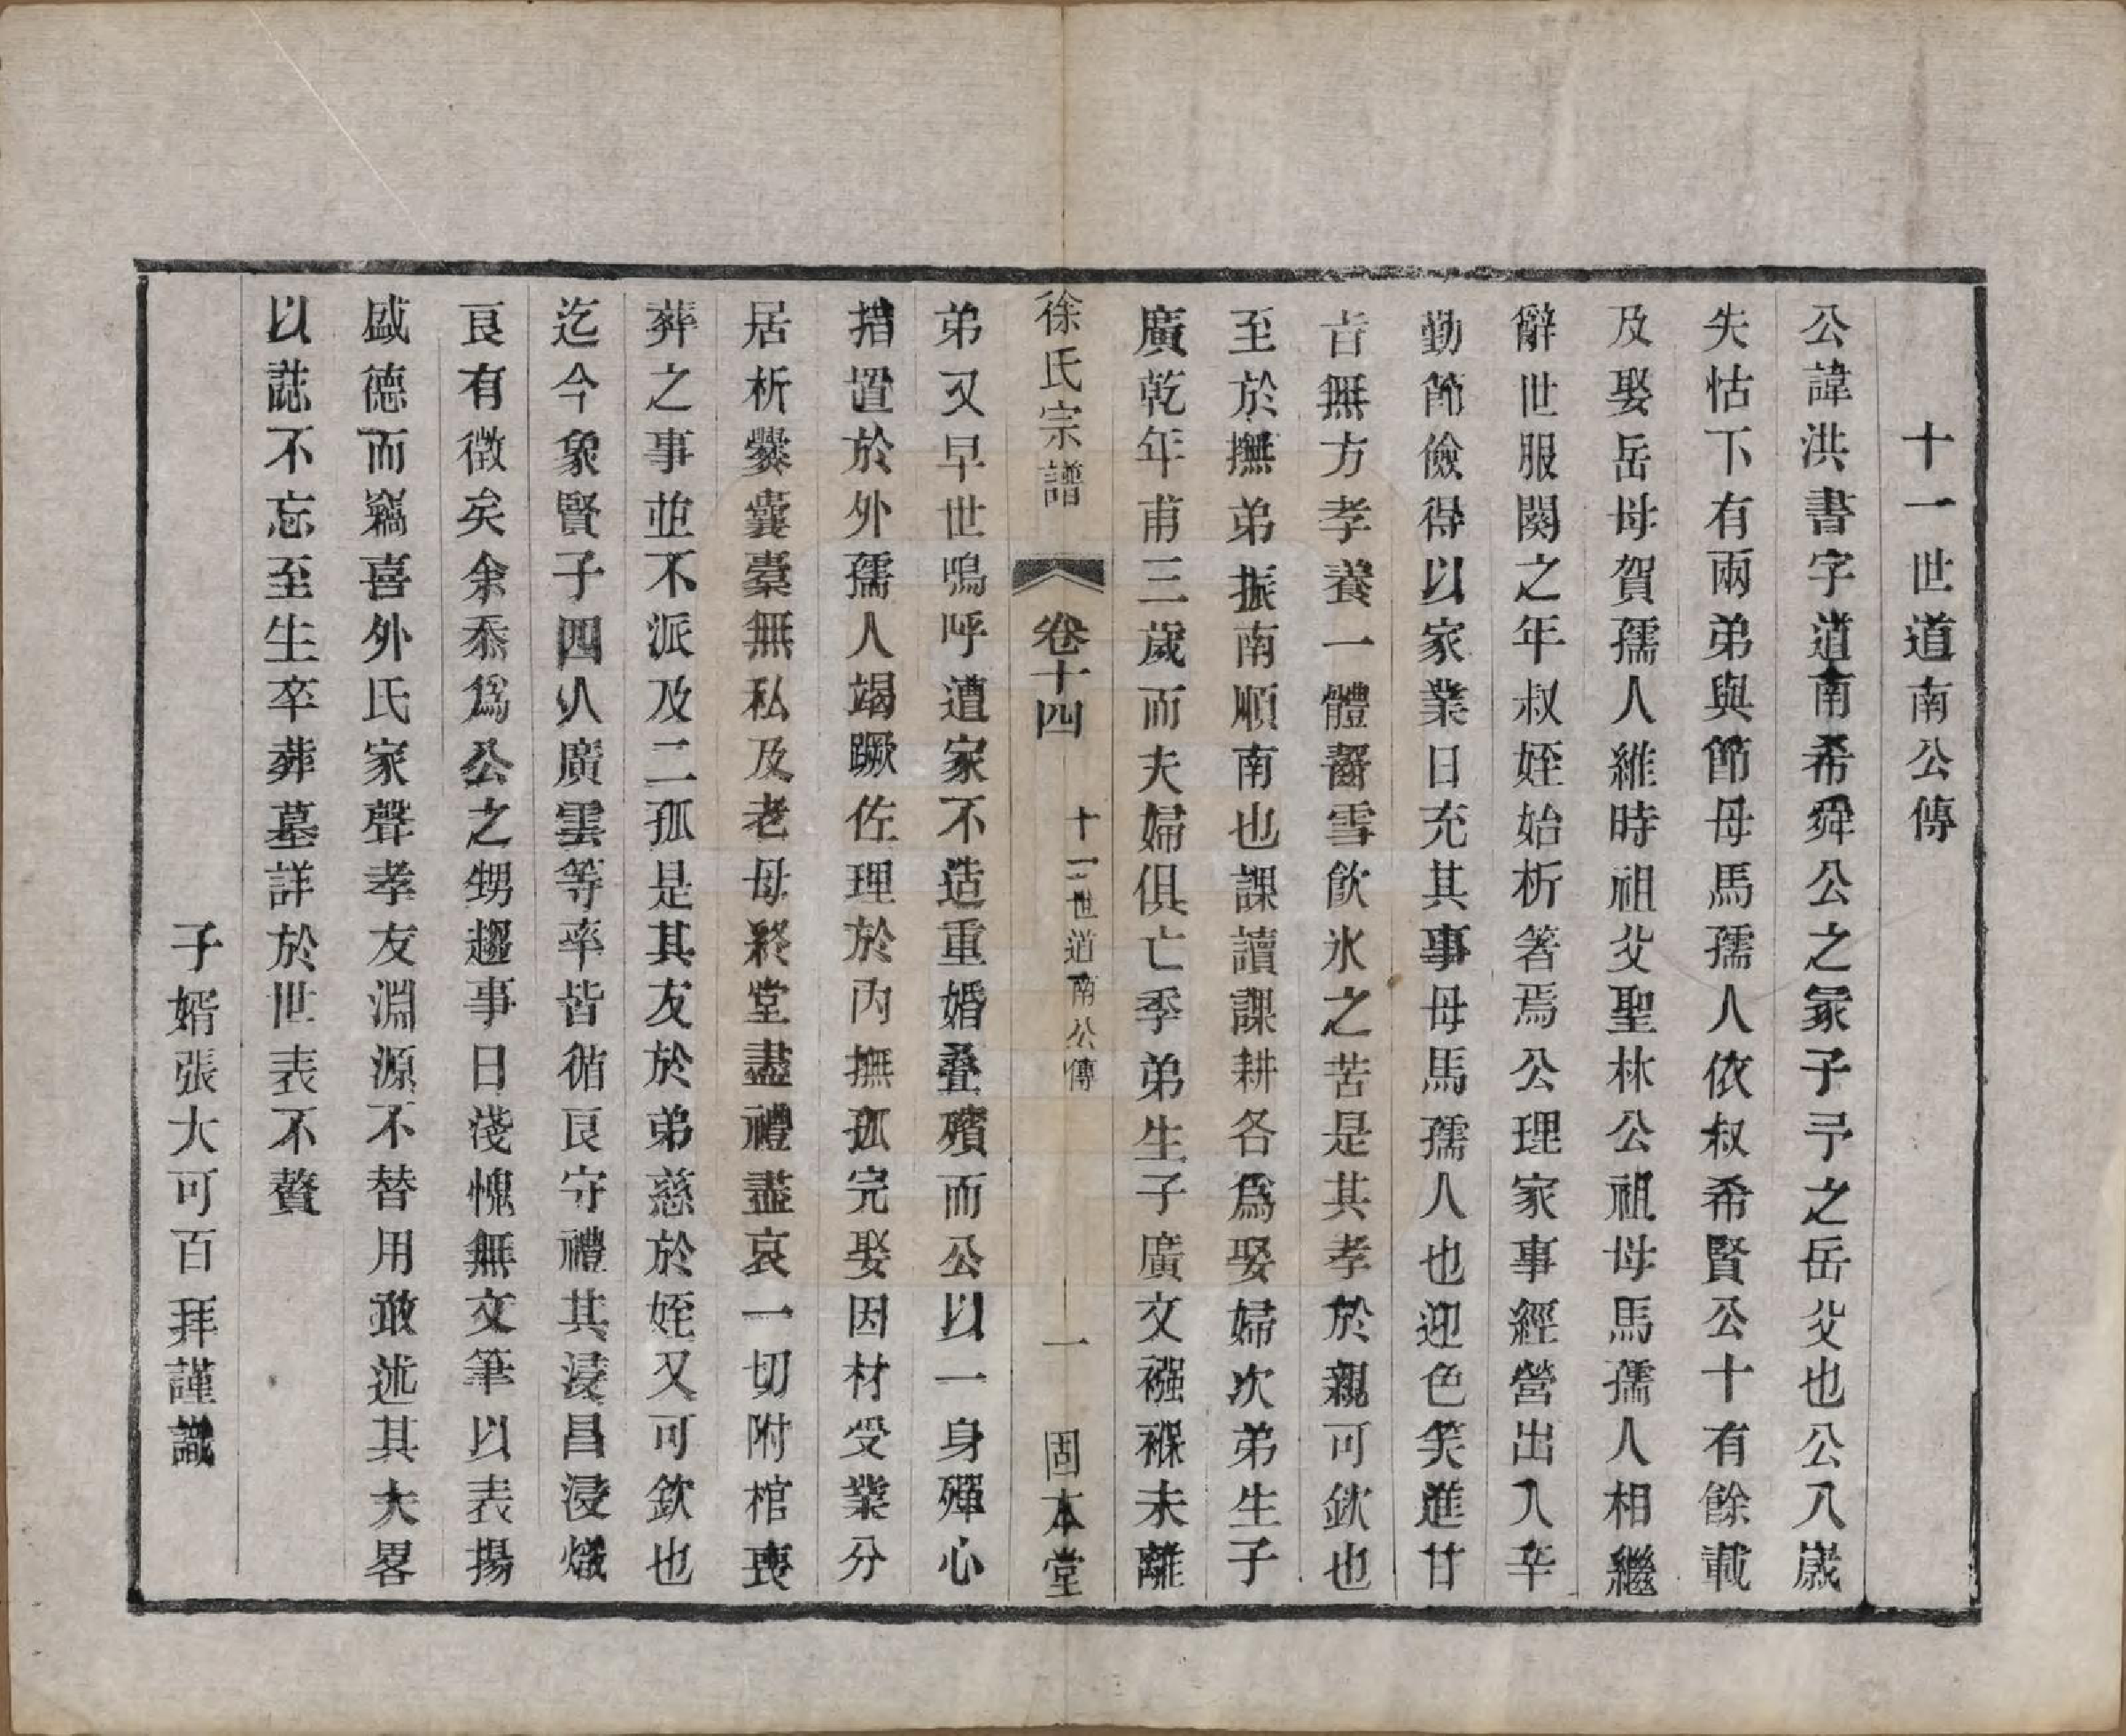 十一世道南公傳
公諱洪書字道南希舜公之冢子予之岳父也公八歲
失怙下有兩弟與節母馬孺人依叔希賢公十有餘載
及娶岳母賀孺人維時祖父聖林公祖母馬孺人相繼
辭世服闋之年叔姪始析箸焉公理家事經營出入辛
勤節儉得以家業日充其事母馬孺人也迎色笑進甘
旨無方孝養一體齧雪飲氷之苦是其孝於親可欽也
至於撫弟振南順南也課讀課耕各爲娶婦次弟生子
廣乾年甫三歲而夫婦俱亡季弟生子廣文襁褓未離
徐氏宗譜 卷十四 十一世道南公傳 一 固本堂
弟又早世嗚呼遭家不造重婚叠殯而公以一身殫心
措置於外孺人竭蹶佐理於內撫孤完娶因材受業分
居析爨囊橐無私及老母終堂盡禮盡哀一切附棺喪
葬之事並不派及二孤是其友於弟慈於姪又可欽也
迄今象賢子四人廣雲等率皆循良守禮其浸昌浸熾
良有徵矣余忝爲公之甥趨事日淺愧無文筆以表揚
盛德而竊喜外氏家聲孝友淵源不替用敢述其大畧
以誌不忘至生卒葬墓詳於世表不贅
子婿張大可百拜謹識